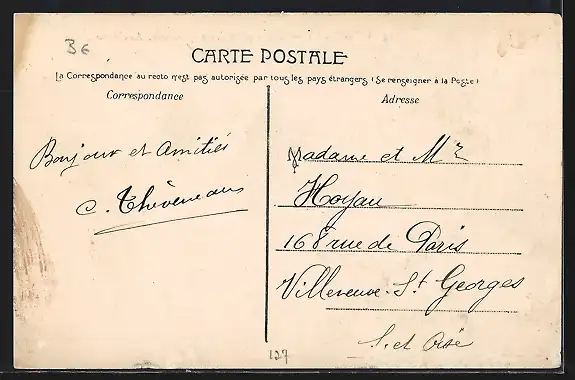 3€
CARTE POSTALE
La Correspondance au recto n'est pas autorisée par tous les pays étrangers (Se renseigner à la Poste)
Correspondance
Adresse
Bonjour et Amitiés
C. Thèveneaus
Madame et Mr
Hoyau
168 rue de Paris
Villeneuve-St Georges
S. et Oise
127